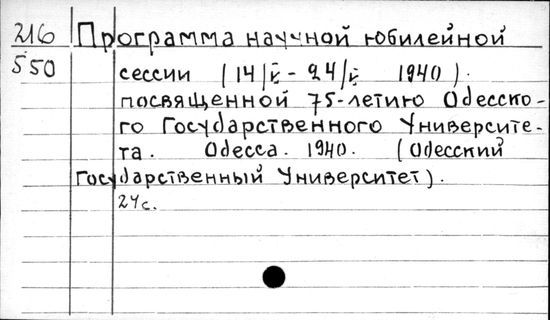 216 Программа научной юбилейной
550 сессии (14/V - 24/V 1940).
посвященной 75-летию Одесско-
го Государственного Университе-
та. Одесса. 1940. (Одесский
Государственный Университет).
24с.